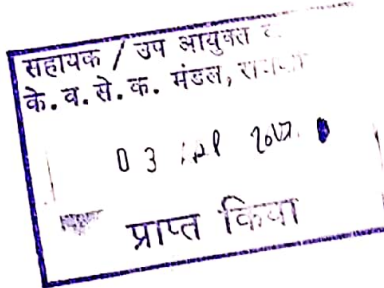 सहायक / उप आयुक्त
के.व.से.क. मंडल,
0 3
प्राप्त किया